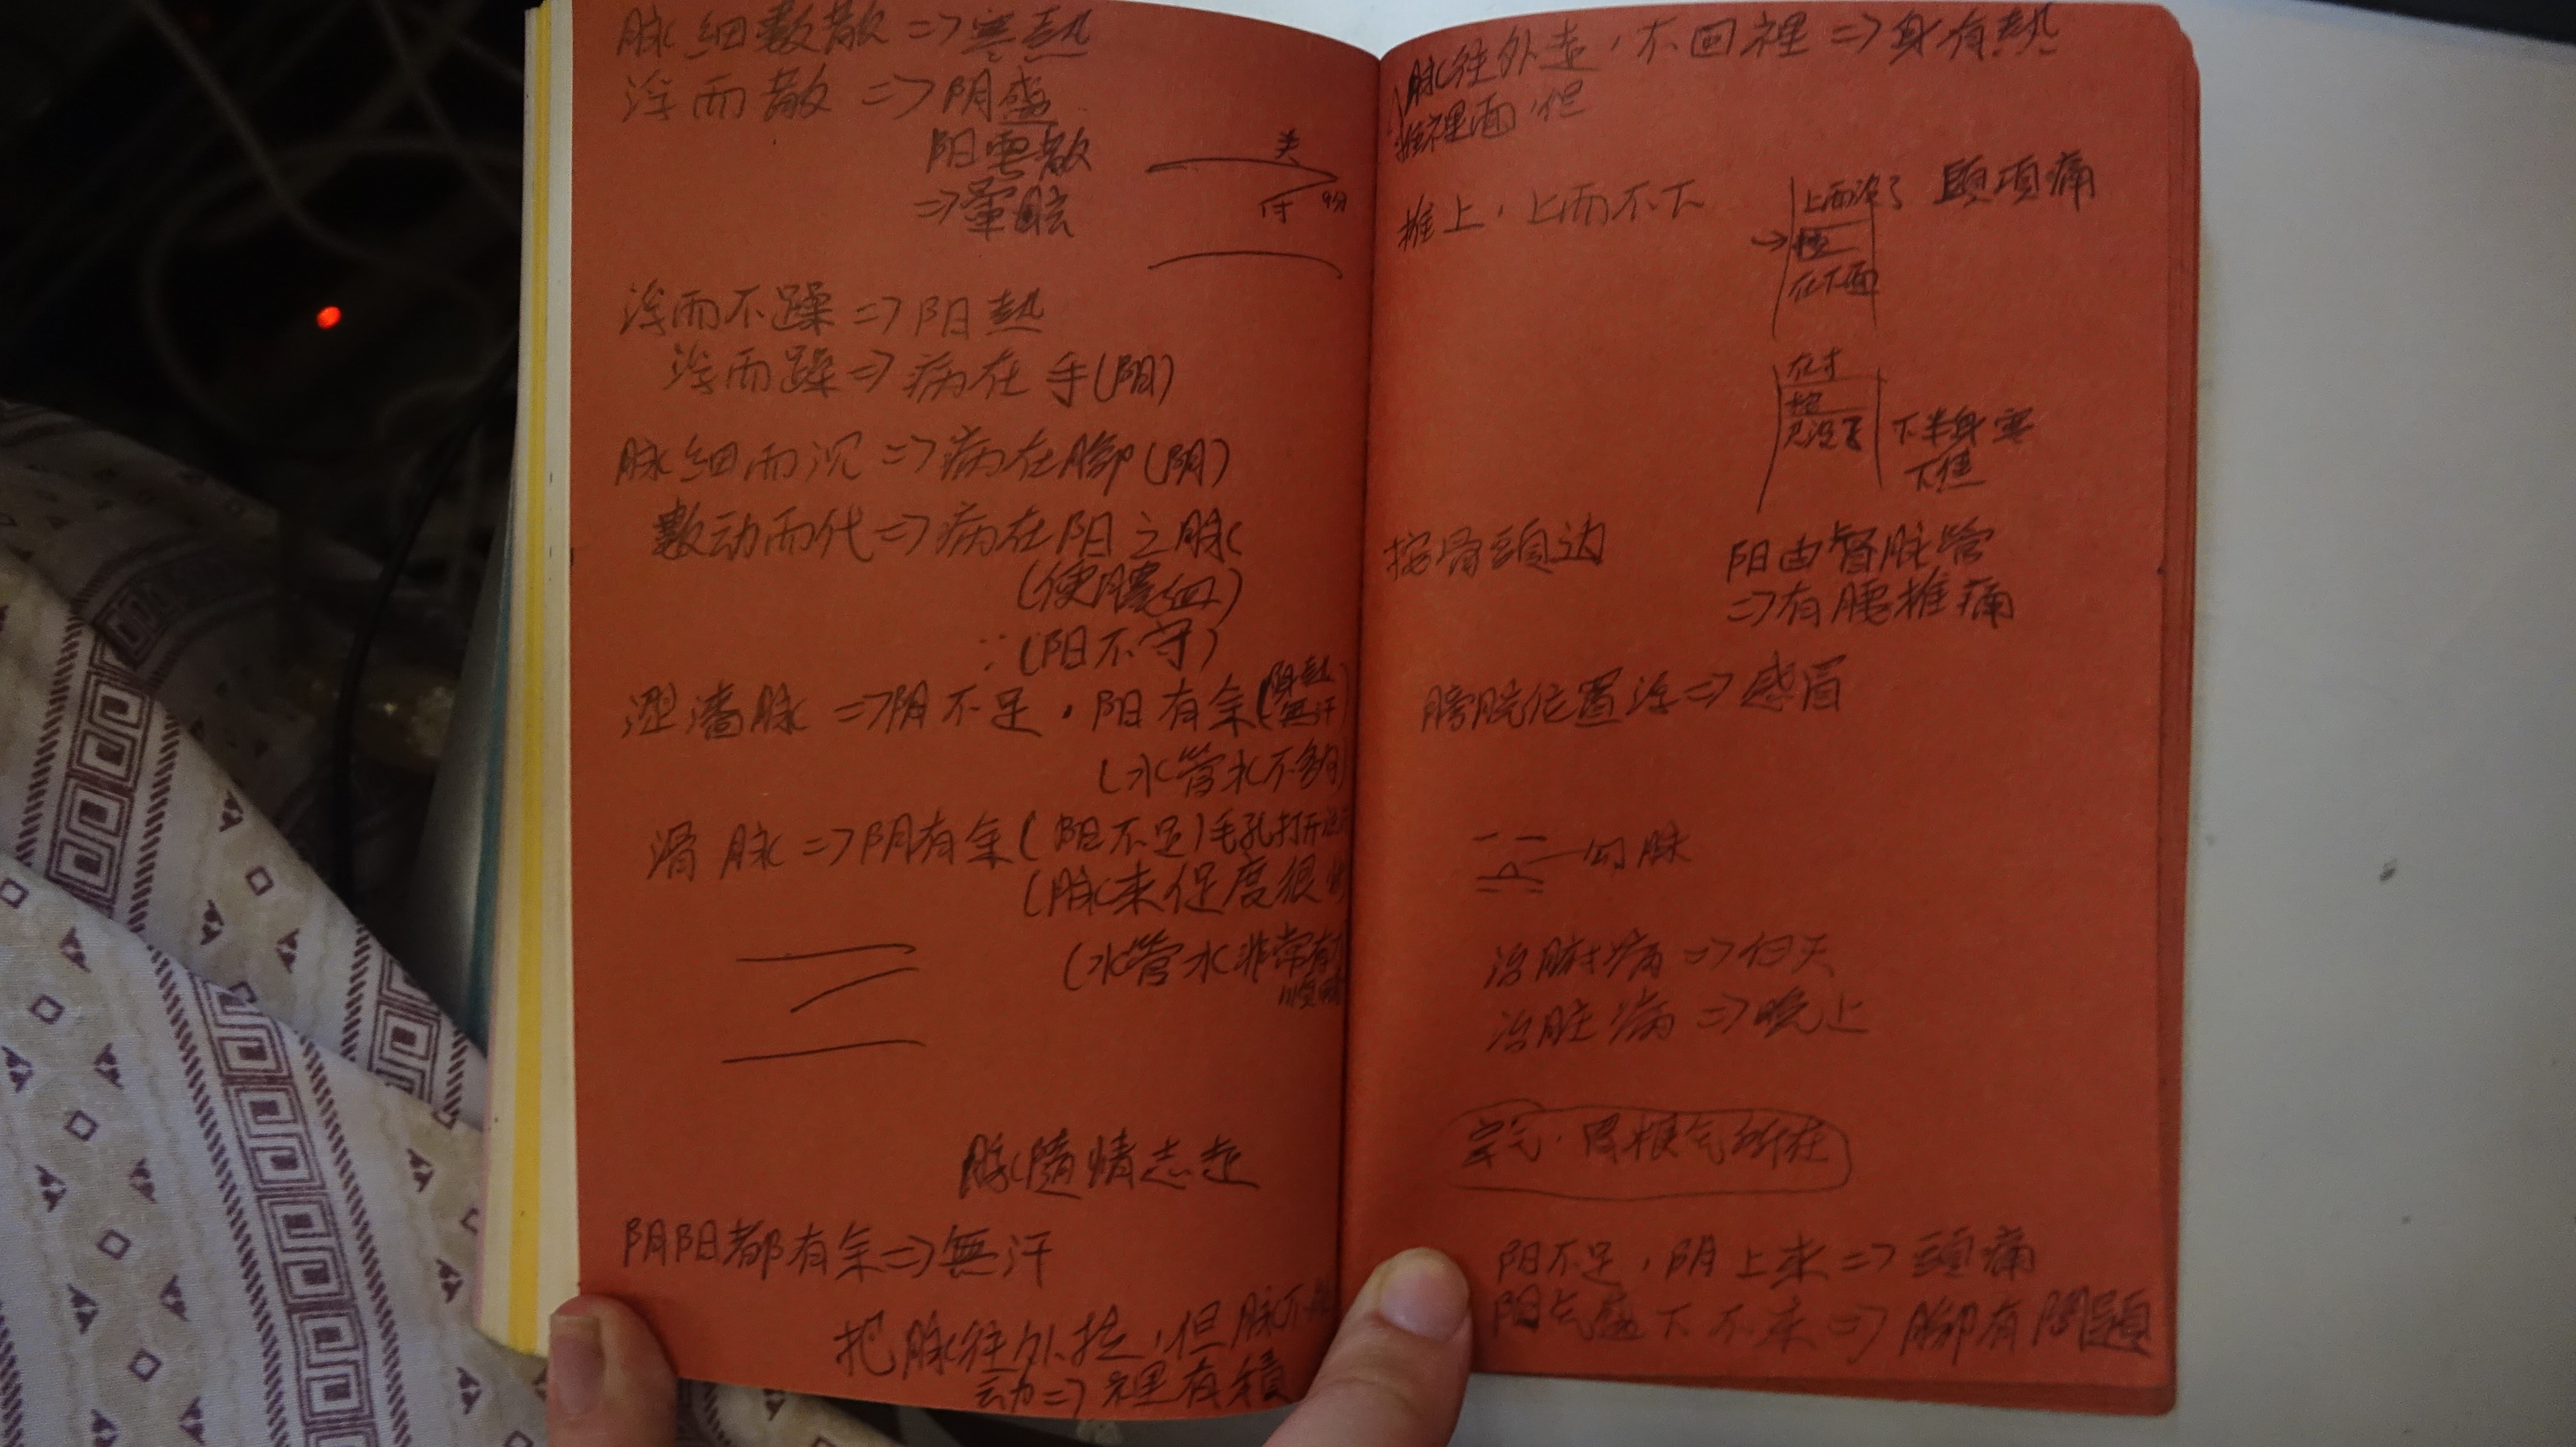 脉细數散 => 寒熱
浮而散 => 阴盛
阳要散
=> 暈眩
关
寸
浮而不躁 => 阳熱
浮而躁 => 病在手(阳)
脉细而沉 => 病在腳(阴)
數动而代 => 病在阳之脉
(便膿血)
∵(阳不守)
澀濇脉 => 阴不足,阳有余(身熱無汗)
(水管水不夠)
滑脉 => 阴有余(阳不足)毛孔打开
(脉来促度很
(水管水非常有
脉隨情志走
阴阳都有余 => 無汗
把脉往外拉,但脉不
动 => 裡有積
脉往外走,不回裡 => 身有熱
推裡面,但
推上,上而不下
上面浮了 頭項痛
在下面
在寸
按
尺没了 下半身寒
按骨頭边
阳由督脏管
=> 有腰椎痛
膀胱位置浮 => 感冒
勾脉
治腑病 => 白天
治脏病 => 晚上
宗气.胃根气所在
阳不足,阴上来 => 頭痛
阳气盛下不来 => 腳有問題